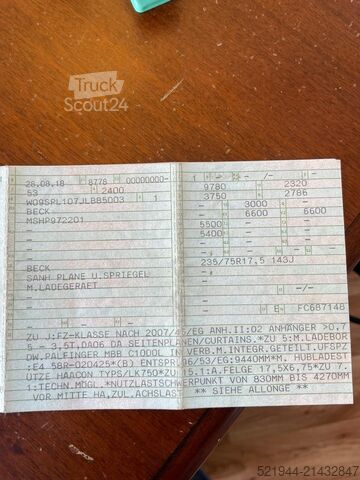 Truck
Scout24
28.08.18 8778 00000000-
53 2400
W09SPL107JLB85003 1
BECK
MSHP972201
-
-
BECK
SANH PLANE U.SPRIEGEL
M.LADEGERAET
1 - -/-
9780 2320
3750 2786
- 3000 -
- 6600 6600
5500 - -
5400 - -
235/75R17,5 143J
-
-/-
E FC687148
ZU J:FZ-KLASSE NACH 2007/46/EG ANH.II:02 ANHÄNGER >0,7
5 - 3,5T,DA06 DA SEITENPLANEN/CURTAINS.*ZU 5:M.LADEBOR
DW.PALFINGER MBB C1000L IN VERB.M.INTEGR.GETEILT.UFSPZ
:E4 58R-020425*(B) ENTSPR.96/53/EG:9440MM*M. HUBLADEST
ÜTZE HAACON TYPS/LK750*ZU 15.1:A.FELGE 17,5X6,75*ZU 7.
1:TECHN.MÖGL.*NUTZLASTSCHWERPUNKT VON 830MM BIS 4270MM
VOR MITTE HA,ZUL.ACHSLAST ** SIEHE ALLONGE **
521944-21432847